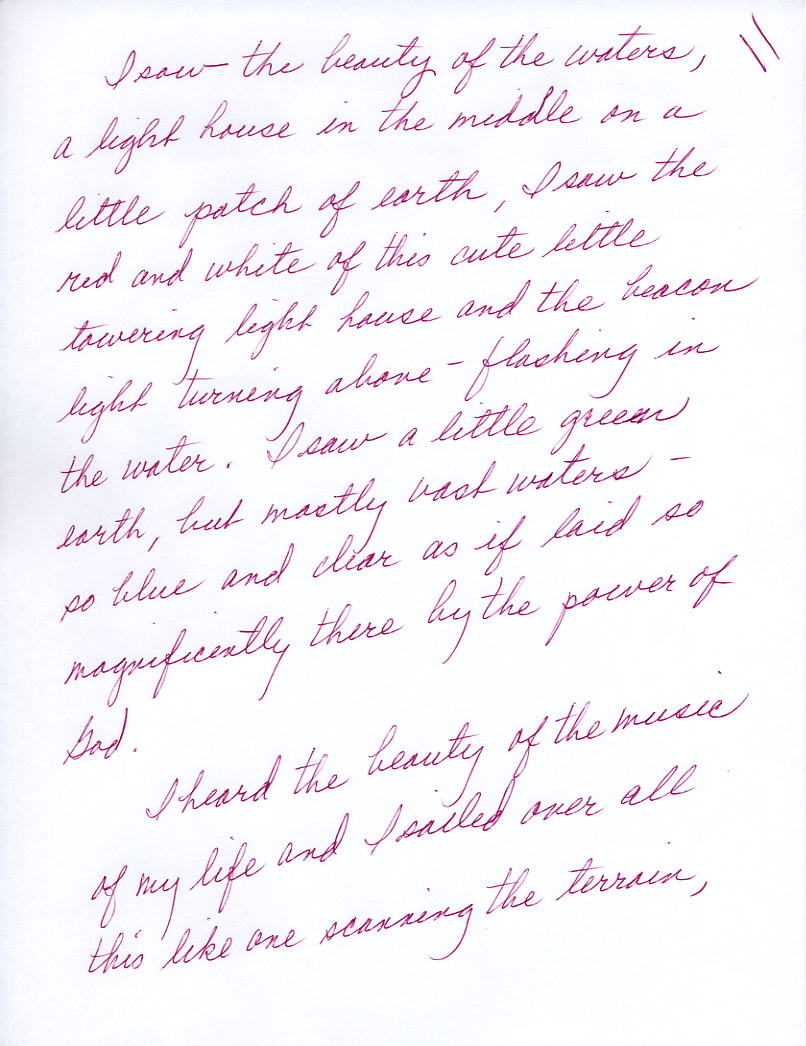 11
I saw the beauty of the waters,
a light house in the middle on a
little patch of earth, I saw the
red and white of this cute little
towering light house and the beacon
light turning above - flashing in
the water. I saw a little green
earth, but mostly vast waters -
so blue and clear as if laid so
magnificently there by the power of
God.
I heard the beauty of the music
of my life and I sailed over all
this like one scanning the terrain,